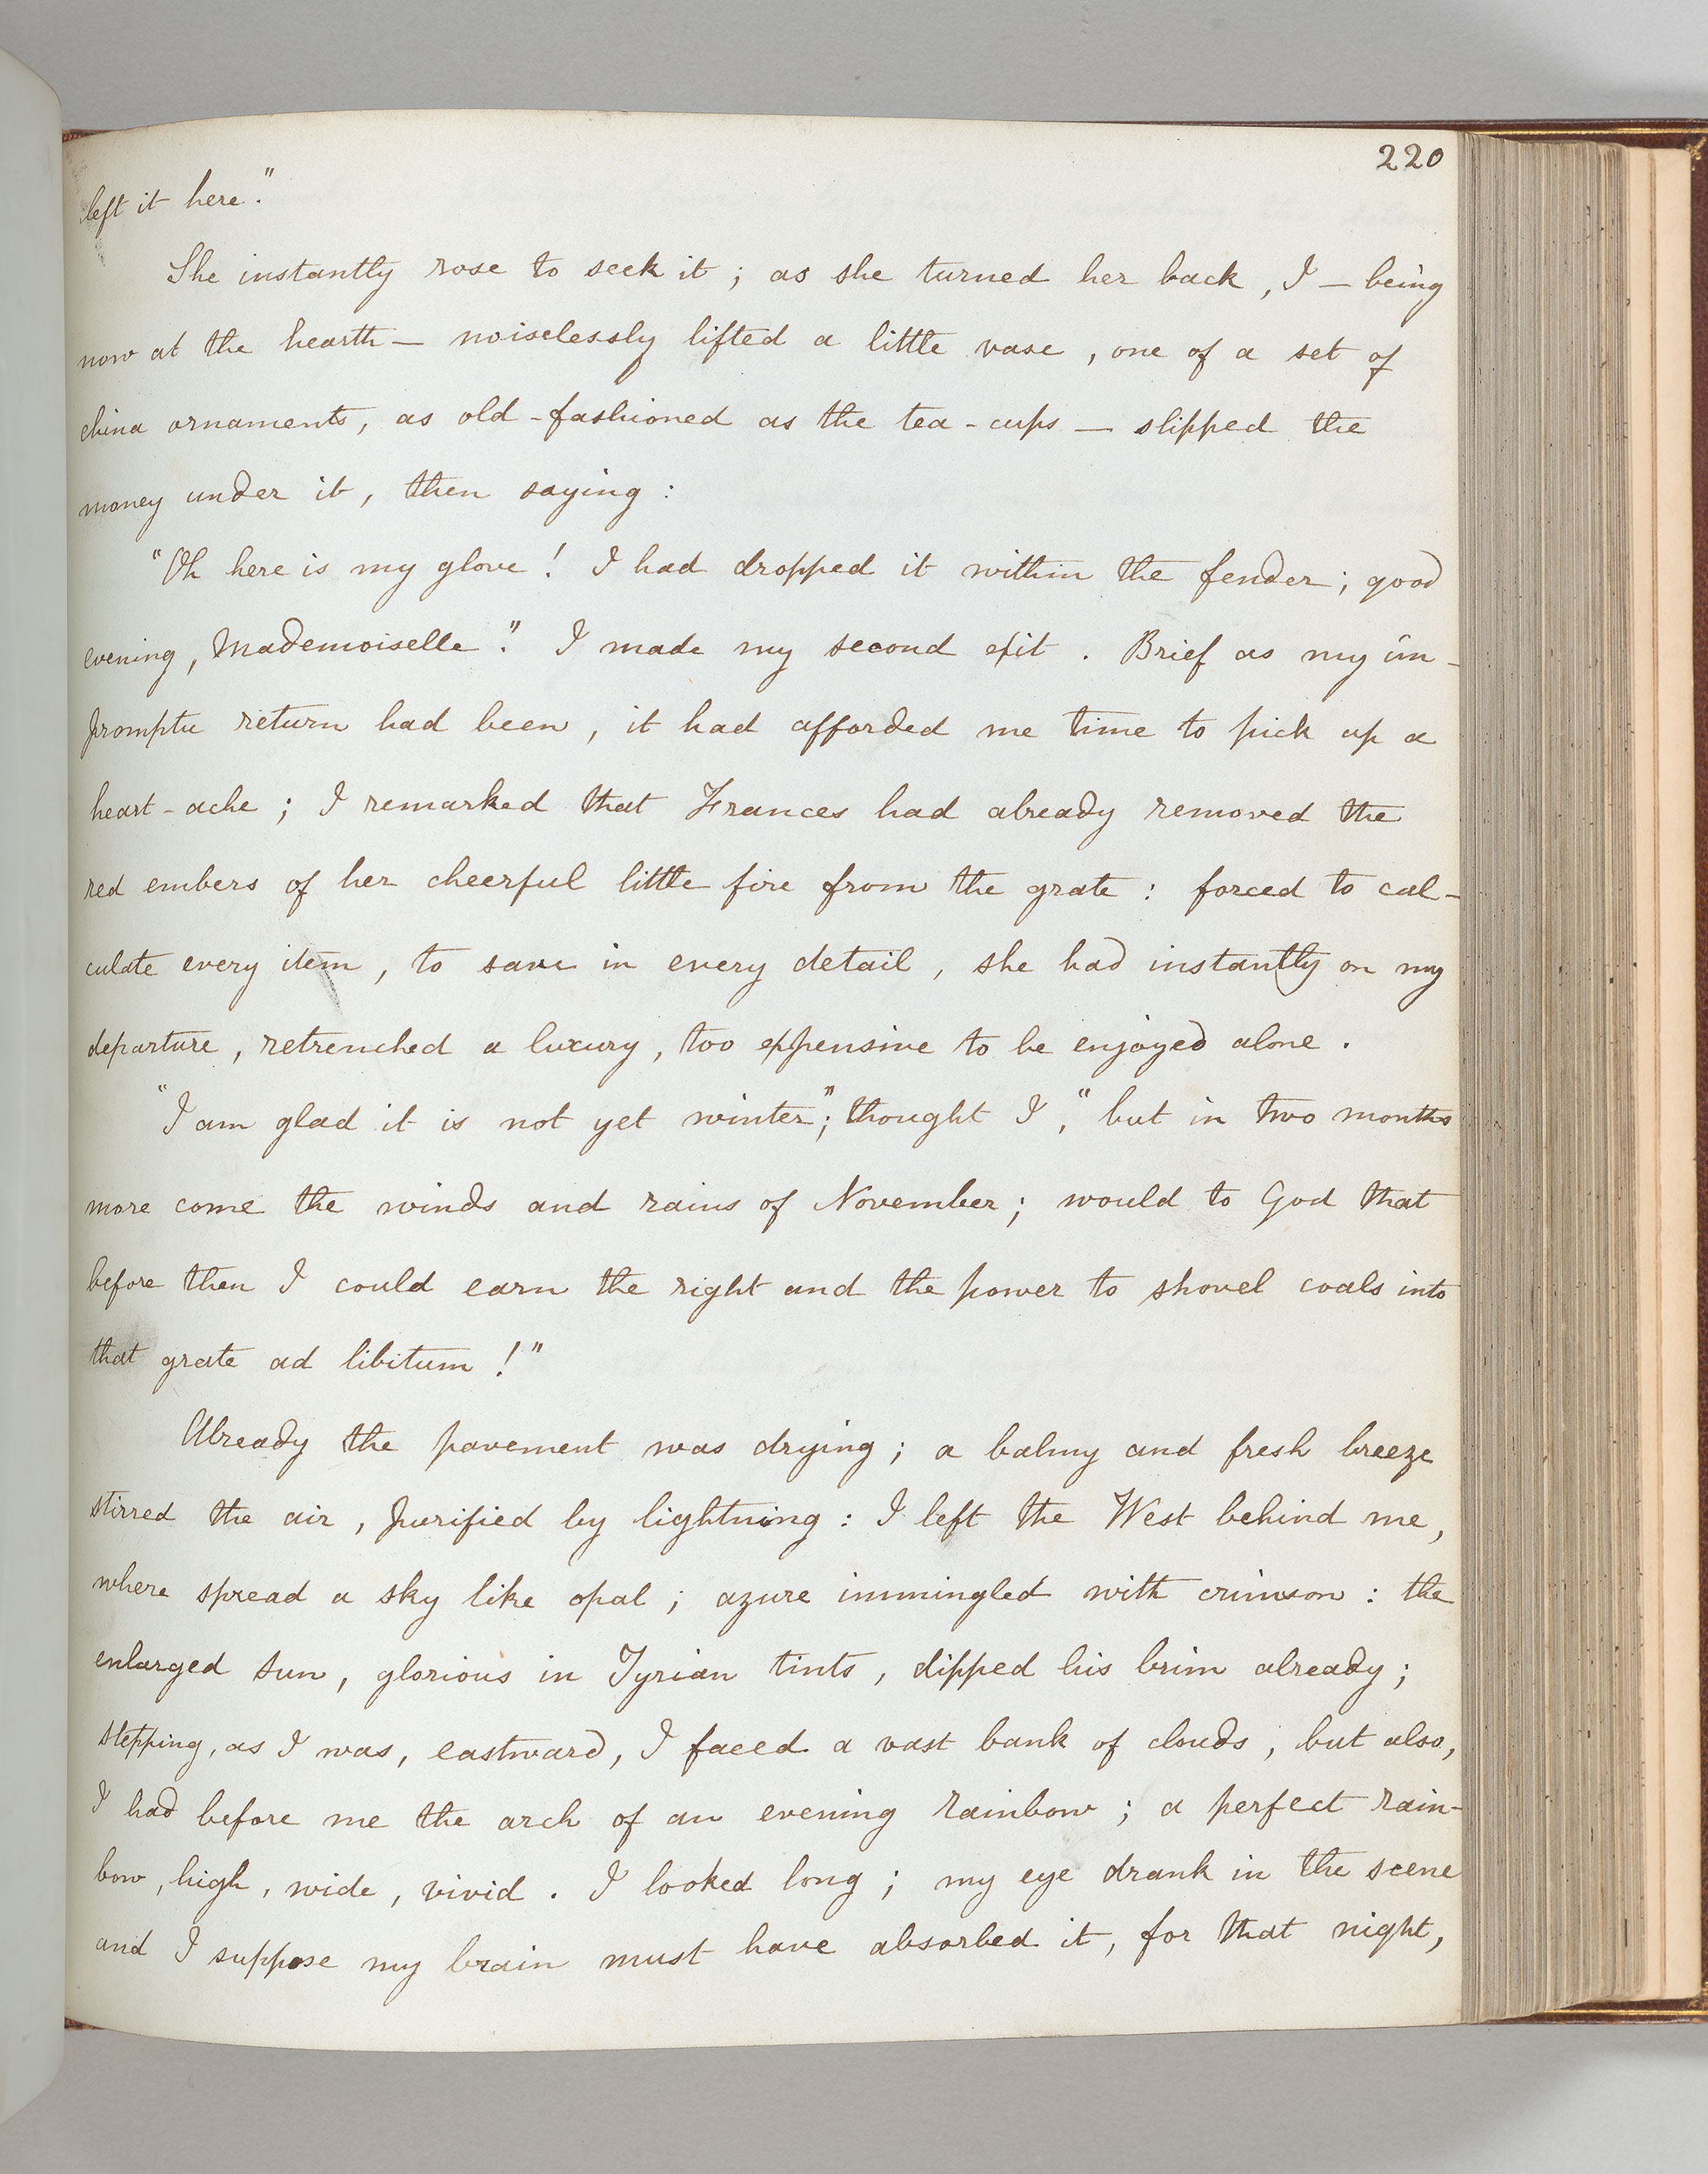 220
left it here."
She instantly rose to seek it ; as she turned her back , I — being
now at the hearth — noiselessly lifted a little vase , one of a set of
china ornaments, as old-fashioned as the tea-cups — slipped the
money under it , then saying :
"Oh here is my glove ! I had dropped it within the fender ; good
evening , Mademoiselle ." I made my second exit . Brief as my im-
promptu return had been , it had afforded me time to pick up a
heart-ache ; I remarked that Frances had already removed the
red embers of her cheerful little fire from the grate : forced to cal-
culate every item , to save in every detail , she had instantly on my
departure , retrenched a luxury , too expensive to be enjoyed alone .
"I am glad it is not yet winter"; thought I , "but in two months
more come the winds and rains of November ; would to God that
before then I could earn the right and the power to shovel coals into
that grate ad libitum !"
Already the pavement was drying ; a balmy and fresh breeze
stirred the air , purified by lightning : I left the West behind me ,
where spread a sky like opal ; azure immingled with crimson : the
enlarged sun , glorious in Tyrian tints , dipped his brim already ;
stepping , as I was , eastward , I faced a vast bank of clouds , but also ,
I had before me the arch of an evening rainbow ; a perfect rain-
bow , high , wide , vivid . I looked long ; my eye drank in the scene
and I suppose my brain must have absorbed it , for that night ,